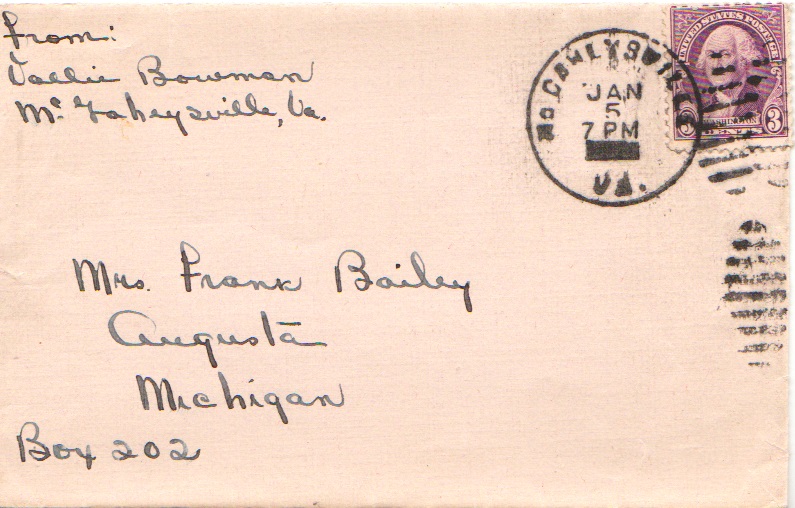 From:
Vallie Bowman
Mc Gaheysville, Va.
JAN
5
7 PM
VA.
UNITED STATES POSTAGE
3 WASHINGTON 3
CENTS
Mrs. Frank Bailey
Augusta
Michigan
Box 202